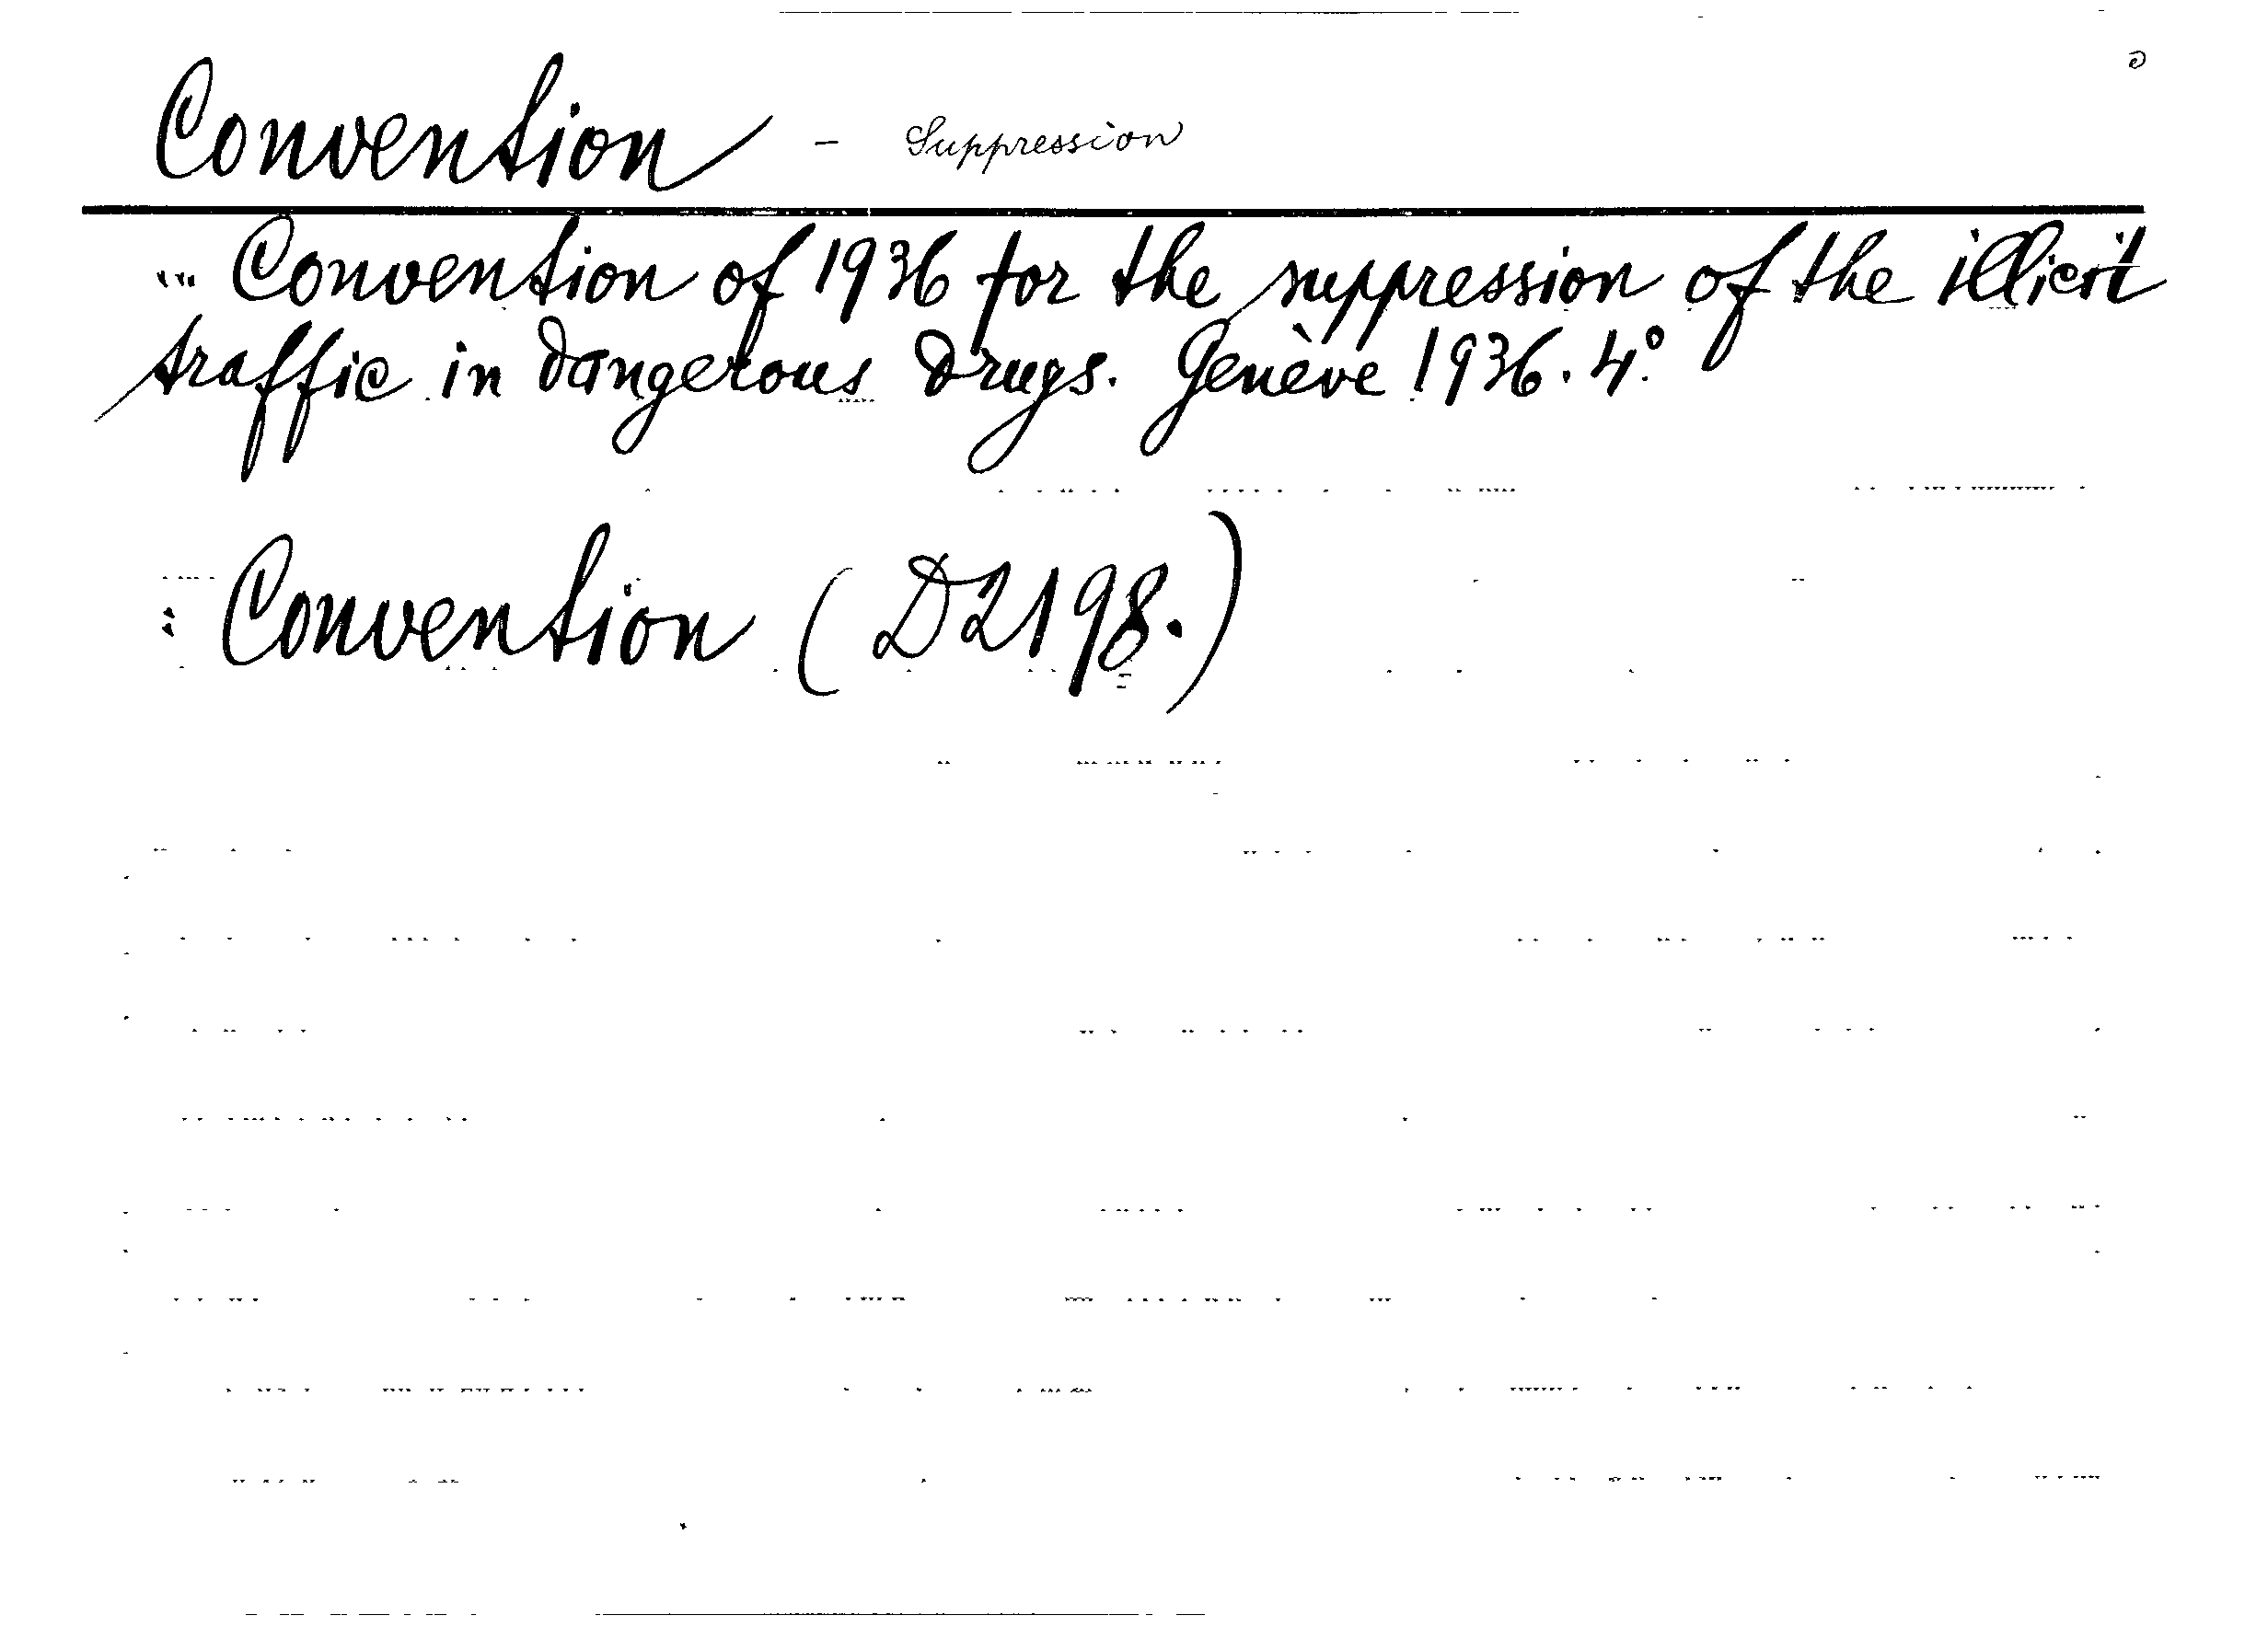 Convention - Suppression
""" Convention of 1936 for the suppression of the illicit
traffic in dangerous drugs. Genève 1936. 4°.
: Convention (D2198.)